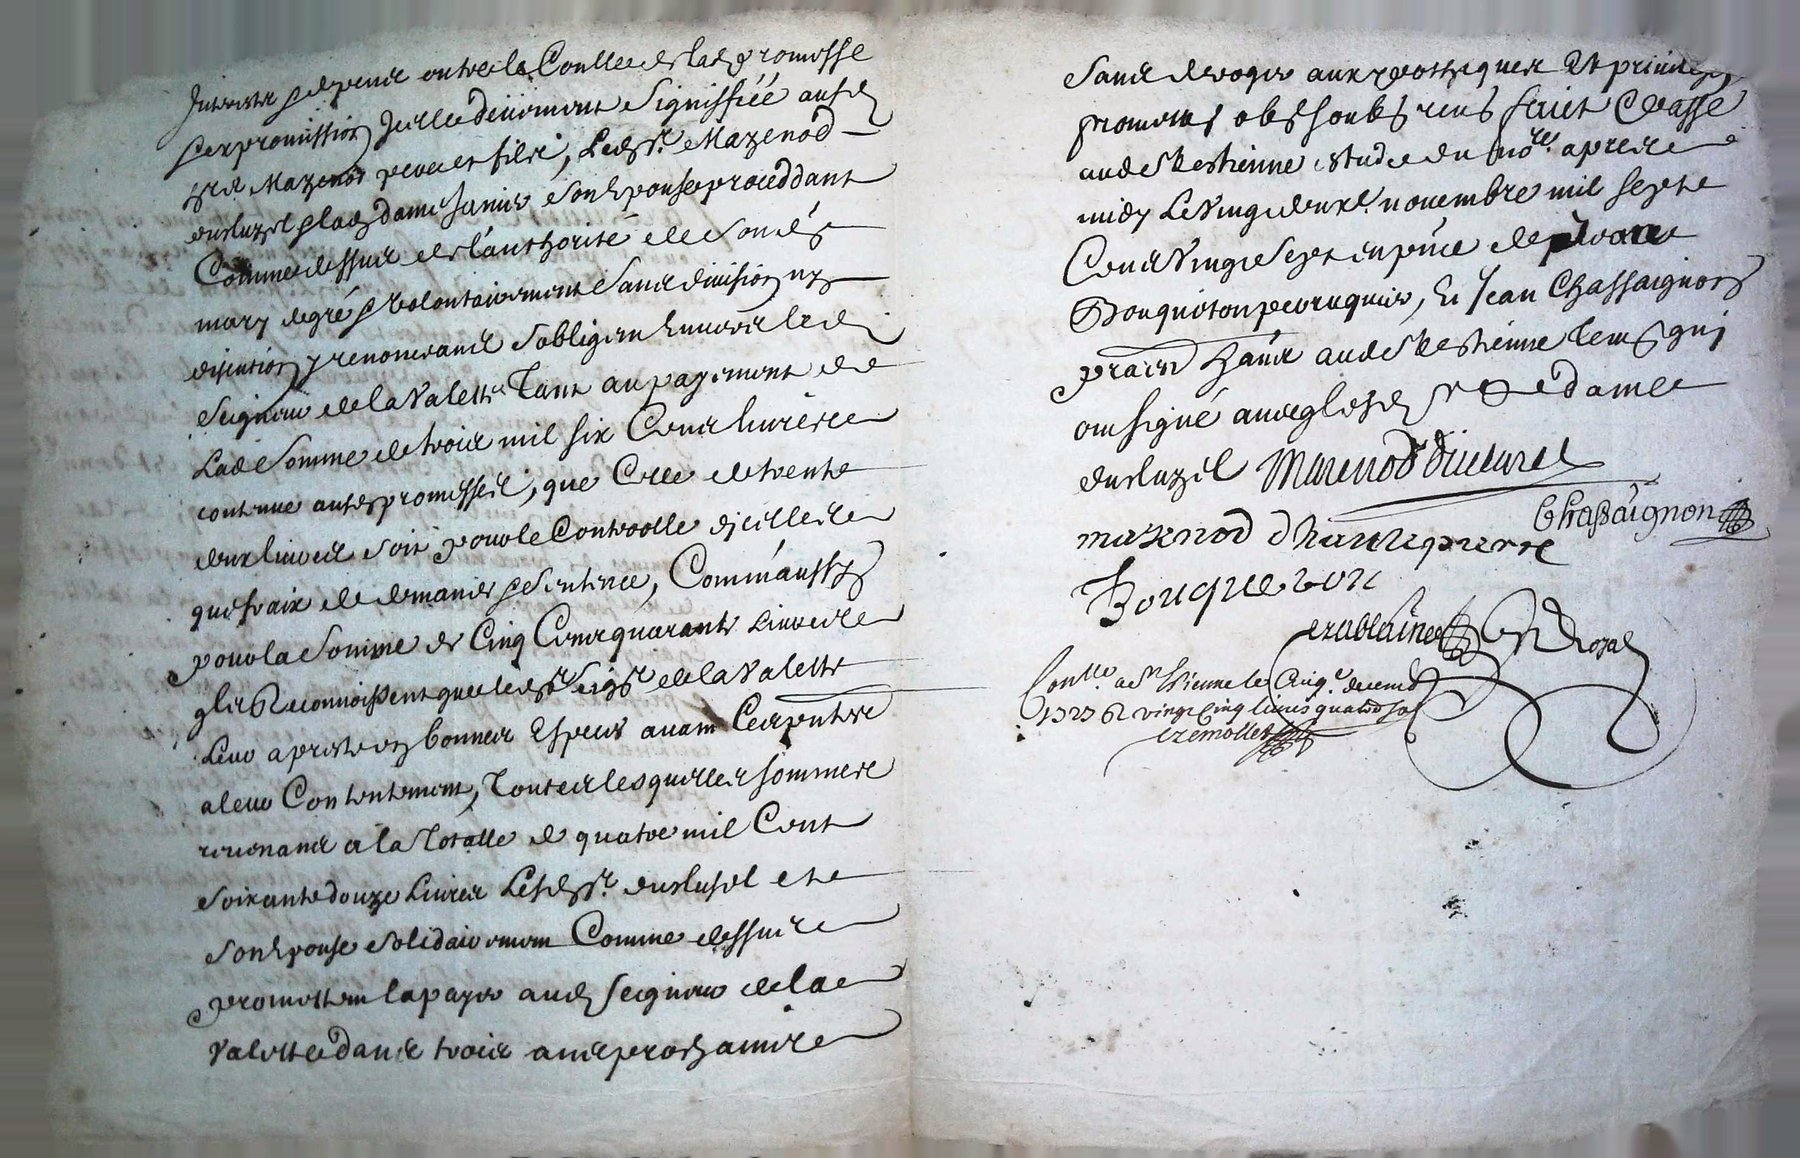 Interests depens outre le Conlle de lade promesse
par promission Icelle deüement signiffiéé ausd
srs Mazenod pere et filz, Ledsr. Mazenod
dueluzel & lad dame Janin son Epouse proceddant
Comme dessus de l'authorité de sond
mary degré & volontairement sans division ny
discution y renoncants sobligent Envers led
Seigneur de la Valette Tant au payement de
Lad somme de trois mil six Cents livres
contenue ausd promesses, que Celle de trente
deux livres soit pour le Controolle dicelles
que fraix de demandes & sentence, Comm'aussy
pour la somme de Cinq Cents quarante Livres
qlz Reconnoissent que led sr seigr de la Valette
Leur a presté en bonnes Especes avant Ces presentes
a leur Contentement, Toutes lesquelles sommes
revenants a la Totalle de quatre mil Cent
soixante douze Livres Lesd sr. dueluzel et
son Epouse solidairement Comme dessus
promettent la payer aud seigneur de la
Valette dans trois ans prochains
sans deroger aux ypotheques Et privileges
promett obls soubs rens fait & passé
aud St Estienne estude du nore. apres
midy Le vingt deuxe. novembre mil sept
Cents vingt sept en pnce de
Bouqueton peruquier, Et Jean Chassaignon
praen hants aud St Estienne tems qui
ont signé avec lesd sr & dame
dueluzel Mazenod dueluzel
Chassaignon
mazenod dhautepierre
Bouqueton
Conlle. a St Etienne le Cinq. decemb
1727 R vingt Cinq livres quatre sol